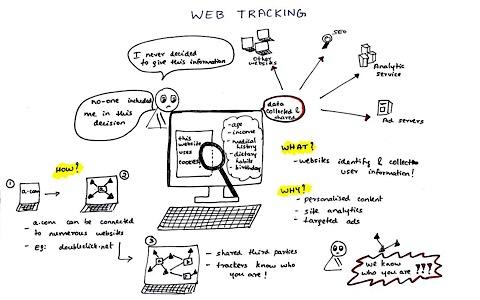 WEB TRACKING
I never decided
to give this information
no-one included
me in this
decision
Other
websites
SEO
Analytic
service
Ad servers
data
collected &
shared
this
website
uses
cookies
- age
- income
- medical
history
- dietary
habits
- birthday
WHAT?
- websites identify & collect
user information!
WHY?
- personalised content
- site analytics
- targeted ads
HOW?
1
a.com
2
- a.com can be connected
to numerous websites
- Eg: doubleclick.net
3
- shared third parties
- trackers know who
you are!
We know
who you are ???